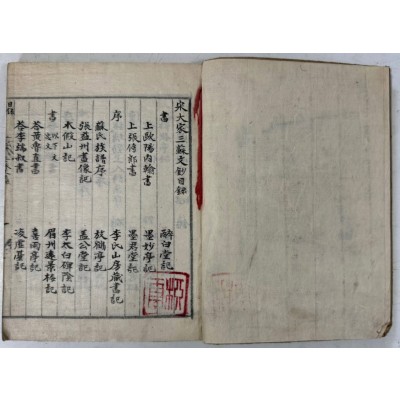 宋大家三蘇文鈔目錄
書 醉白堂記
上歐陽內翰書 墨妙亭記
上張侍郎書 墨君堂記
序 李氏山房藏書記
蘇氏族譜序 放鶴亭記
張益州畫像記 蓋公堂記
木假山記 李太白碑陰記
書 眉州遠景樓記
答黃魯直書 喜雨亭記
答李端叔書 凌虛臺記
目錄